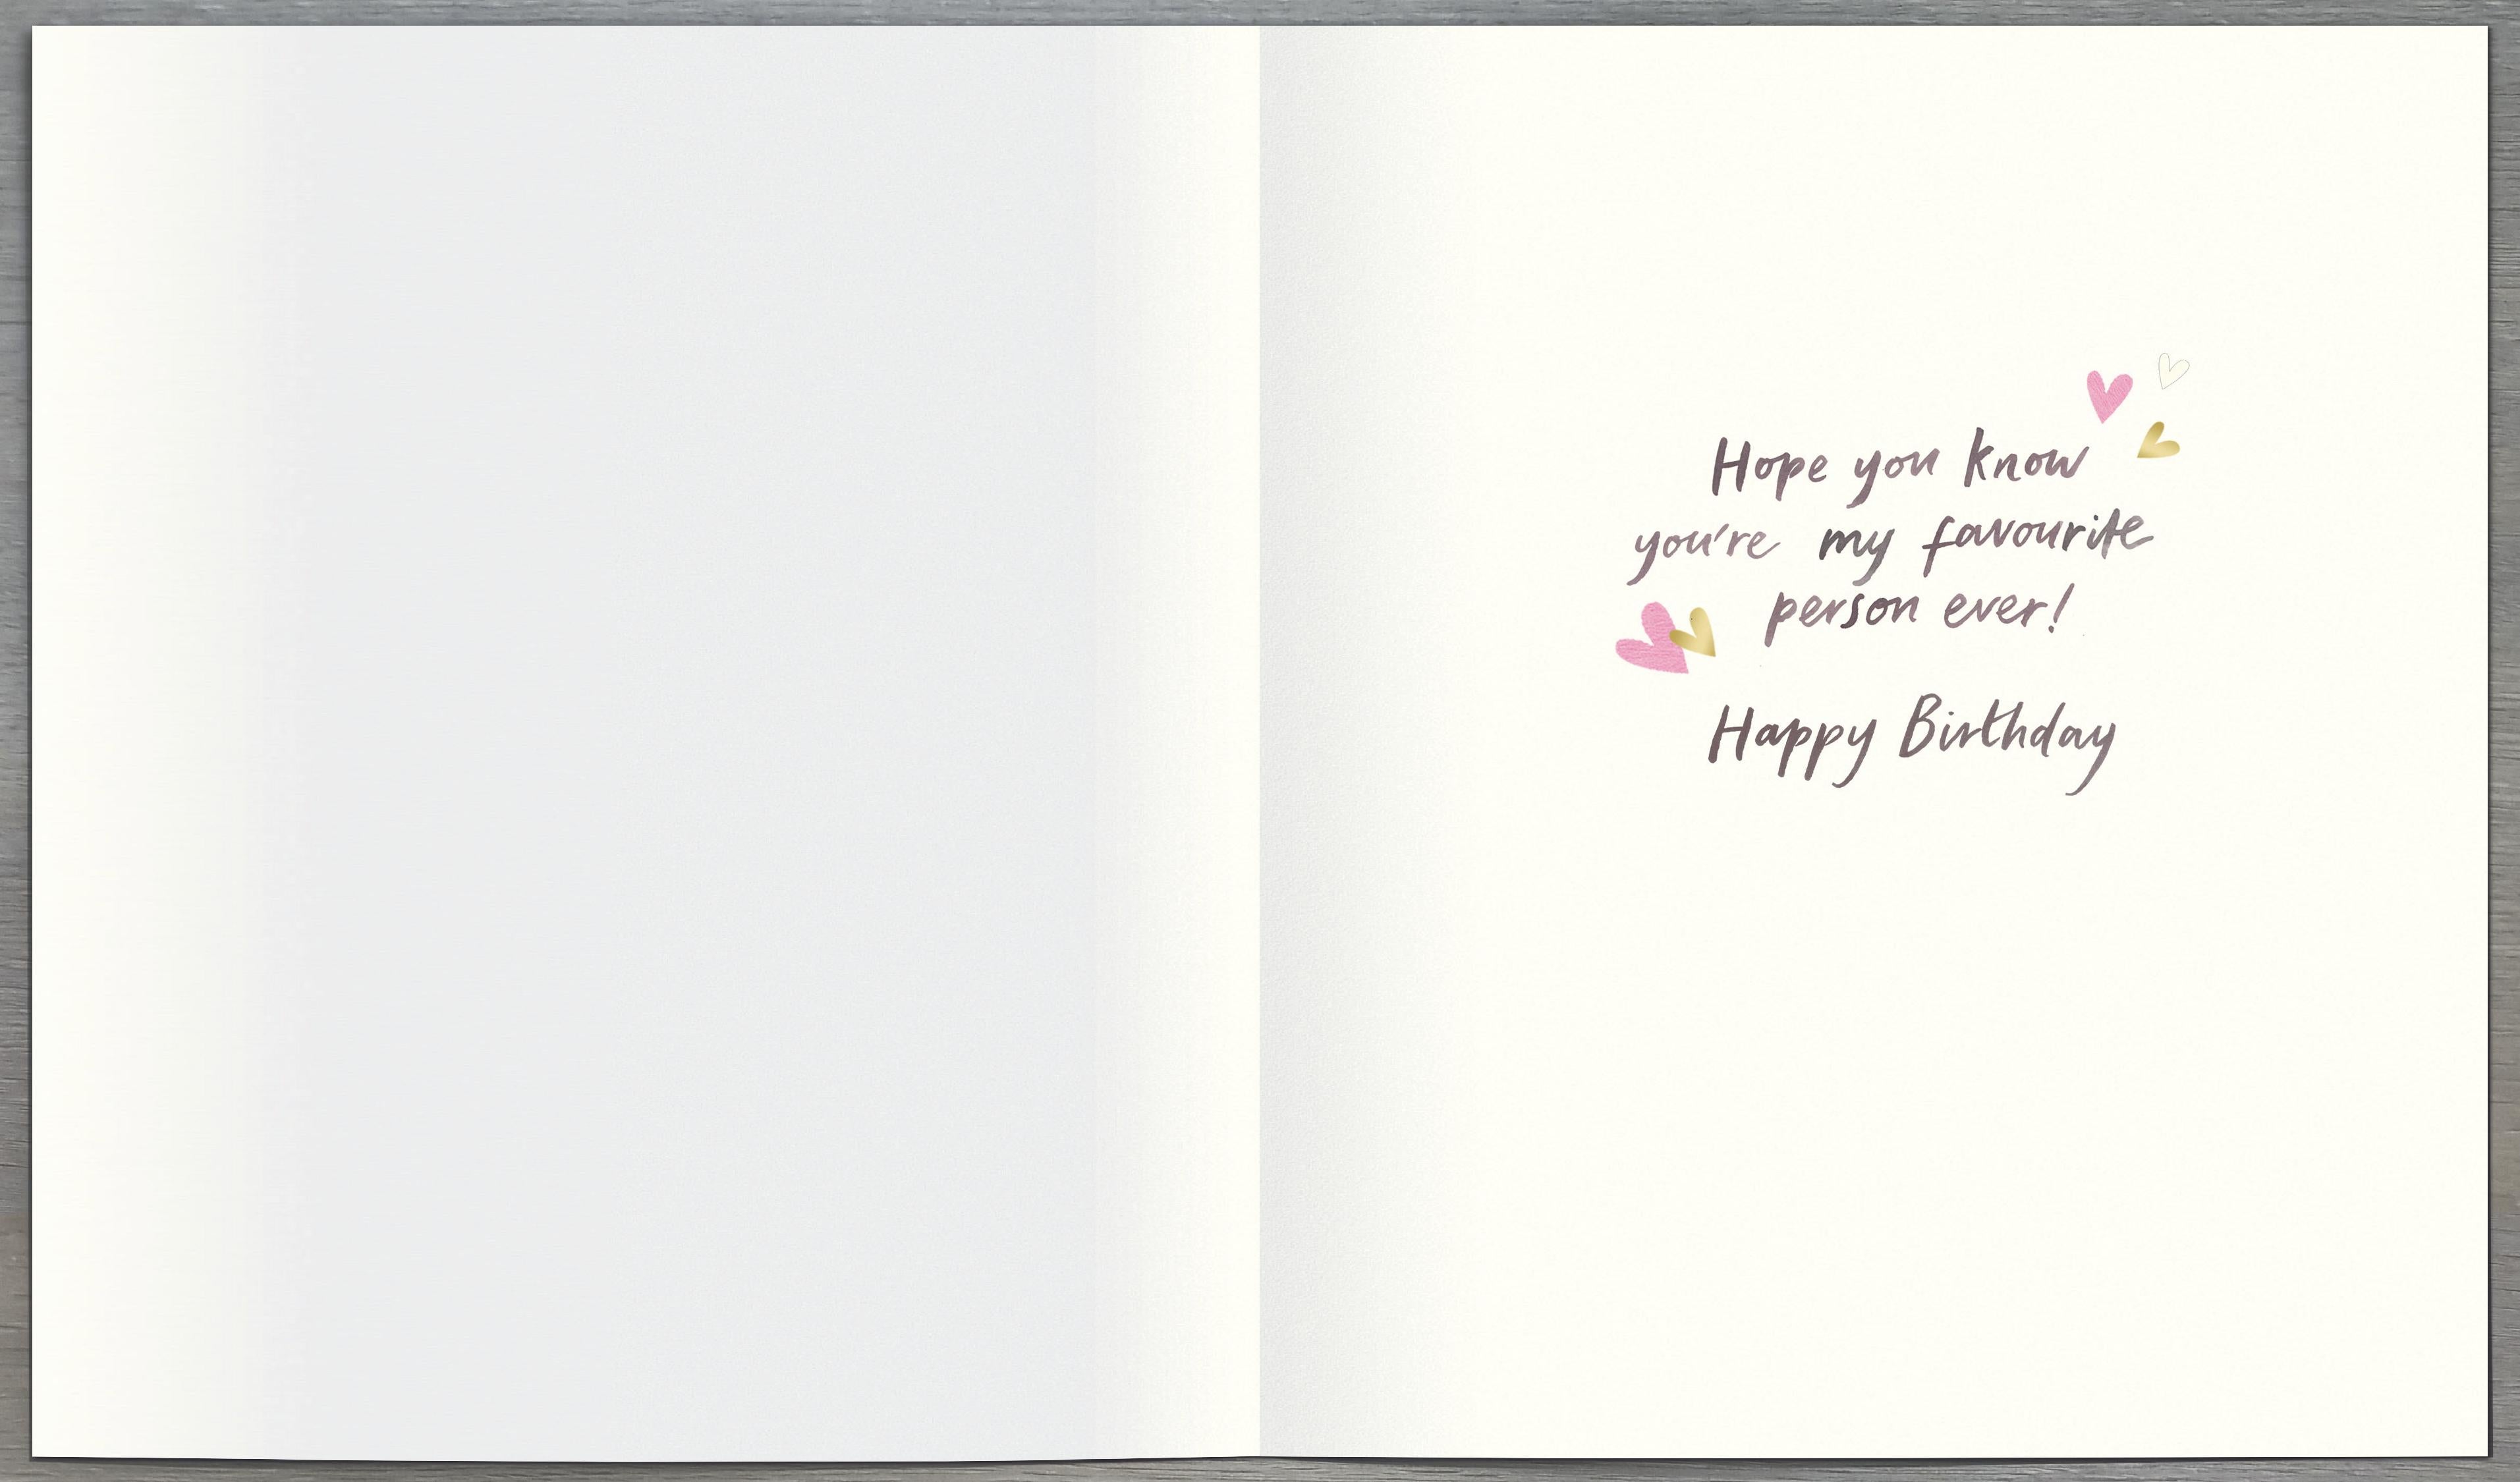 Hope you know
you're my favourite
person ever!
Happy Birthday